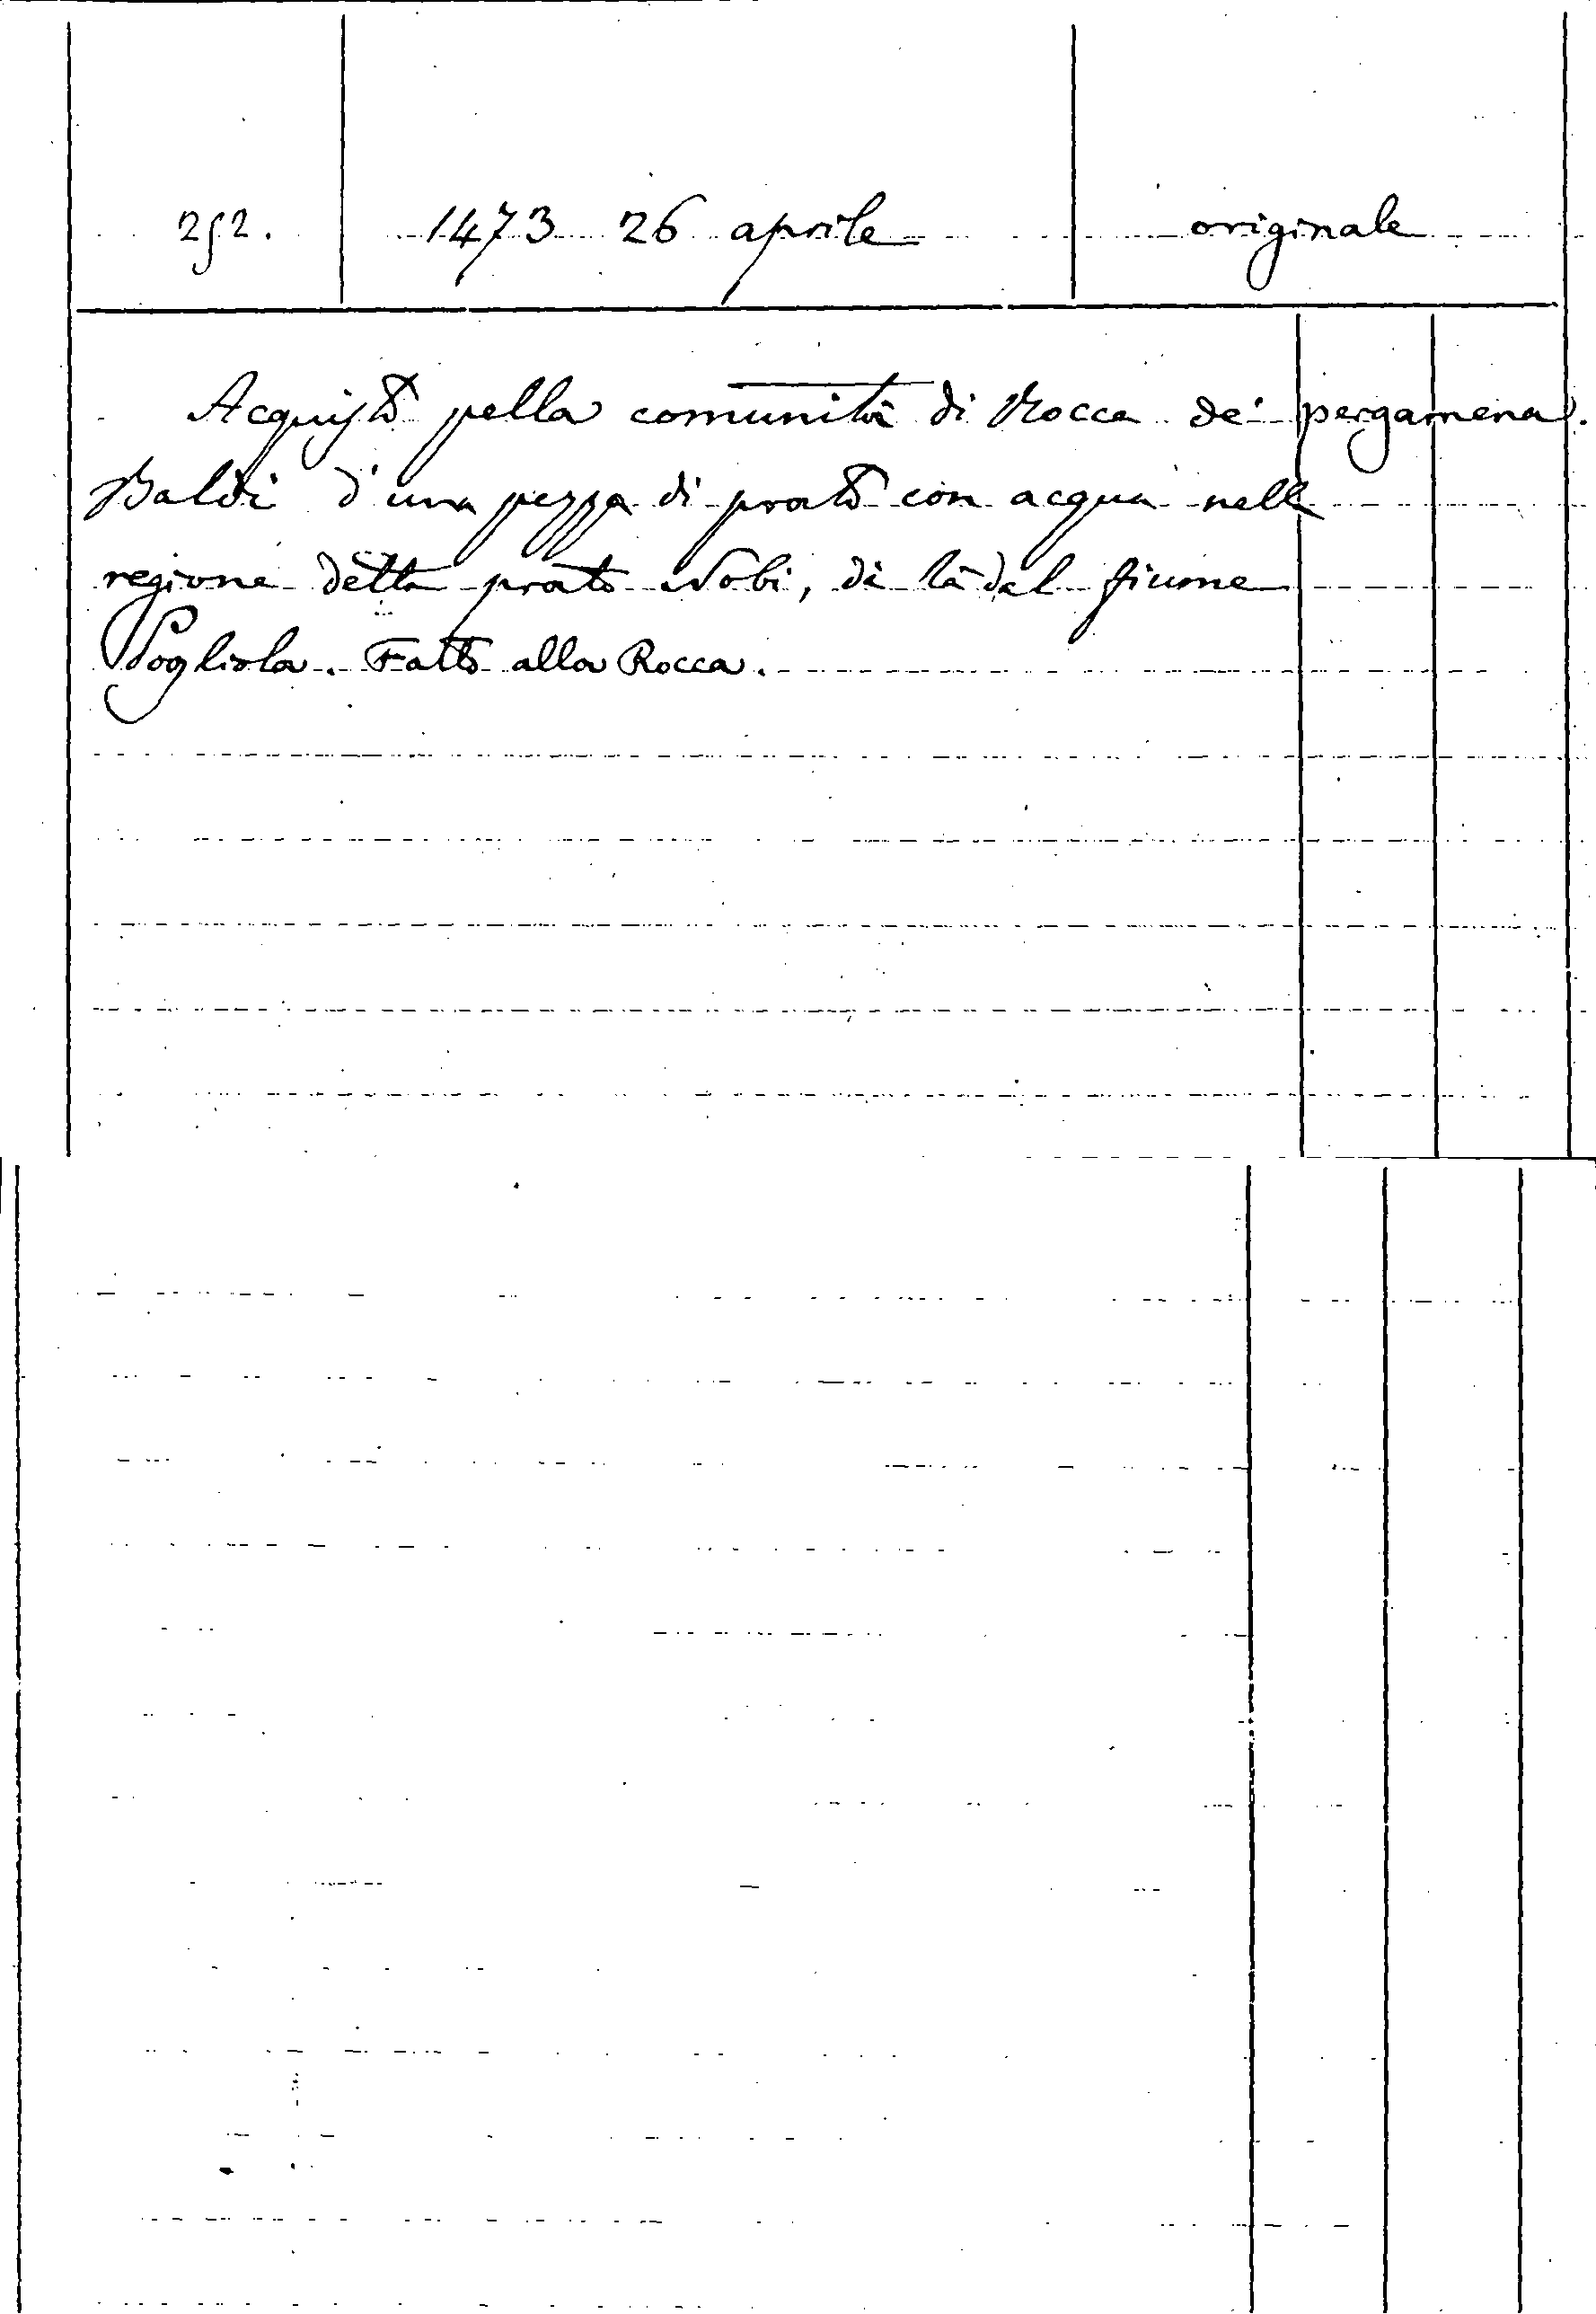 252. 1473 26 aprile originale
Acquisto pella comunità di Rocca de' pergamena.
Baldi d'una pezza di prato con acqua nella
regione detta prato Nobi, di là dal fiume
Pogliola. Fatto alla Rocca.